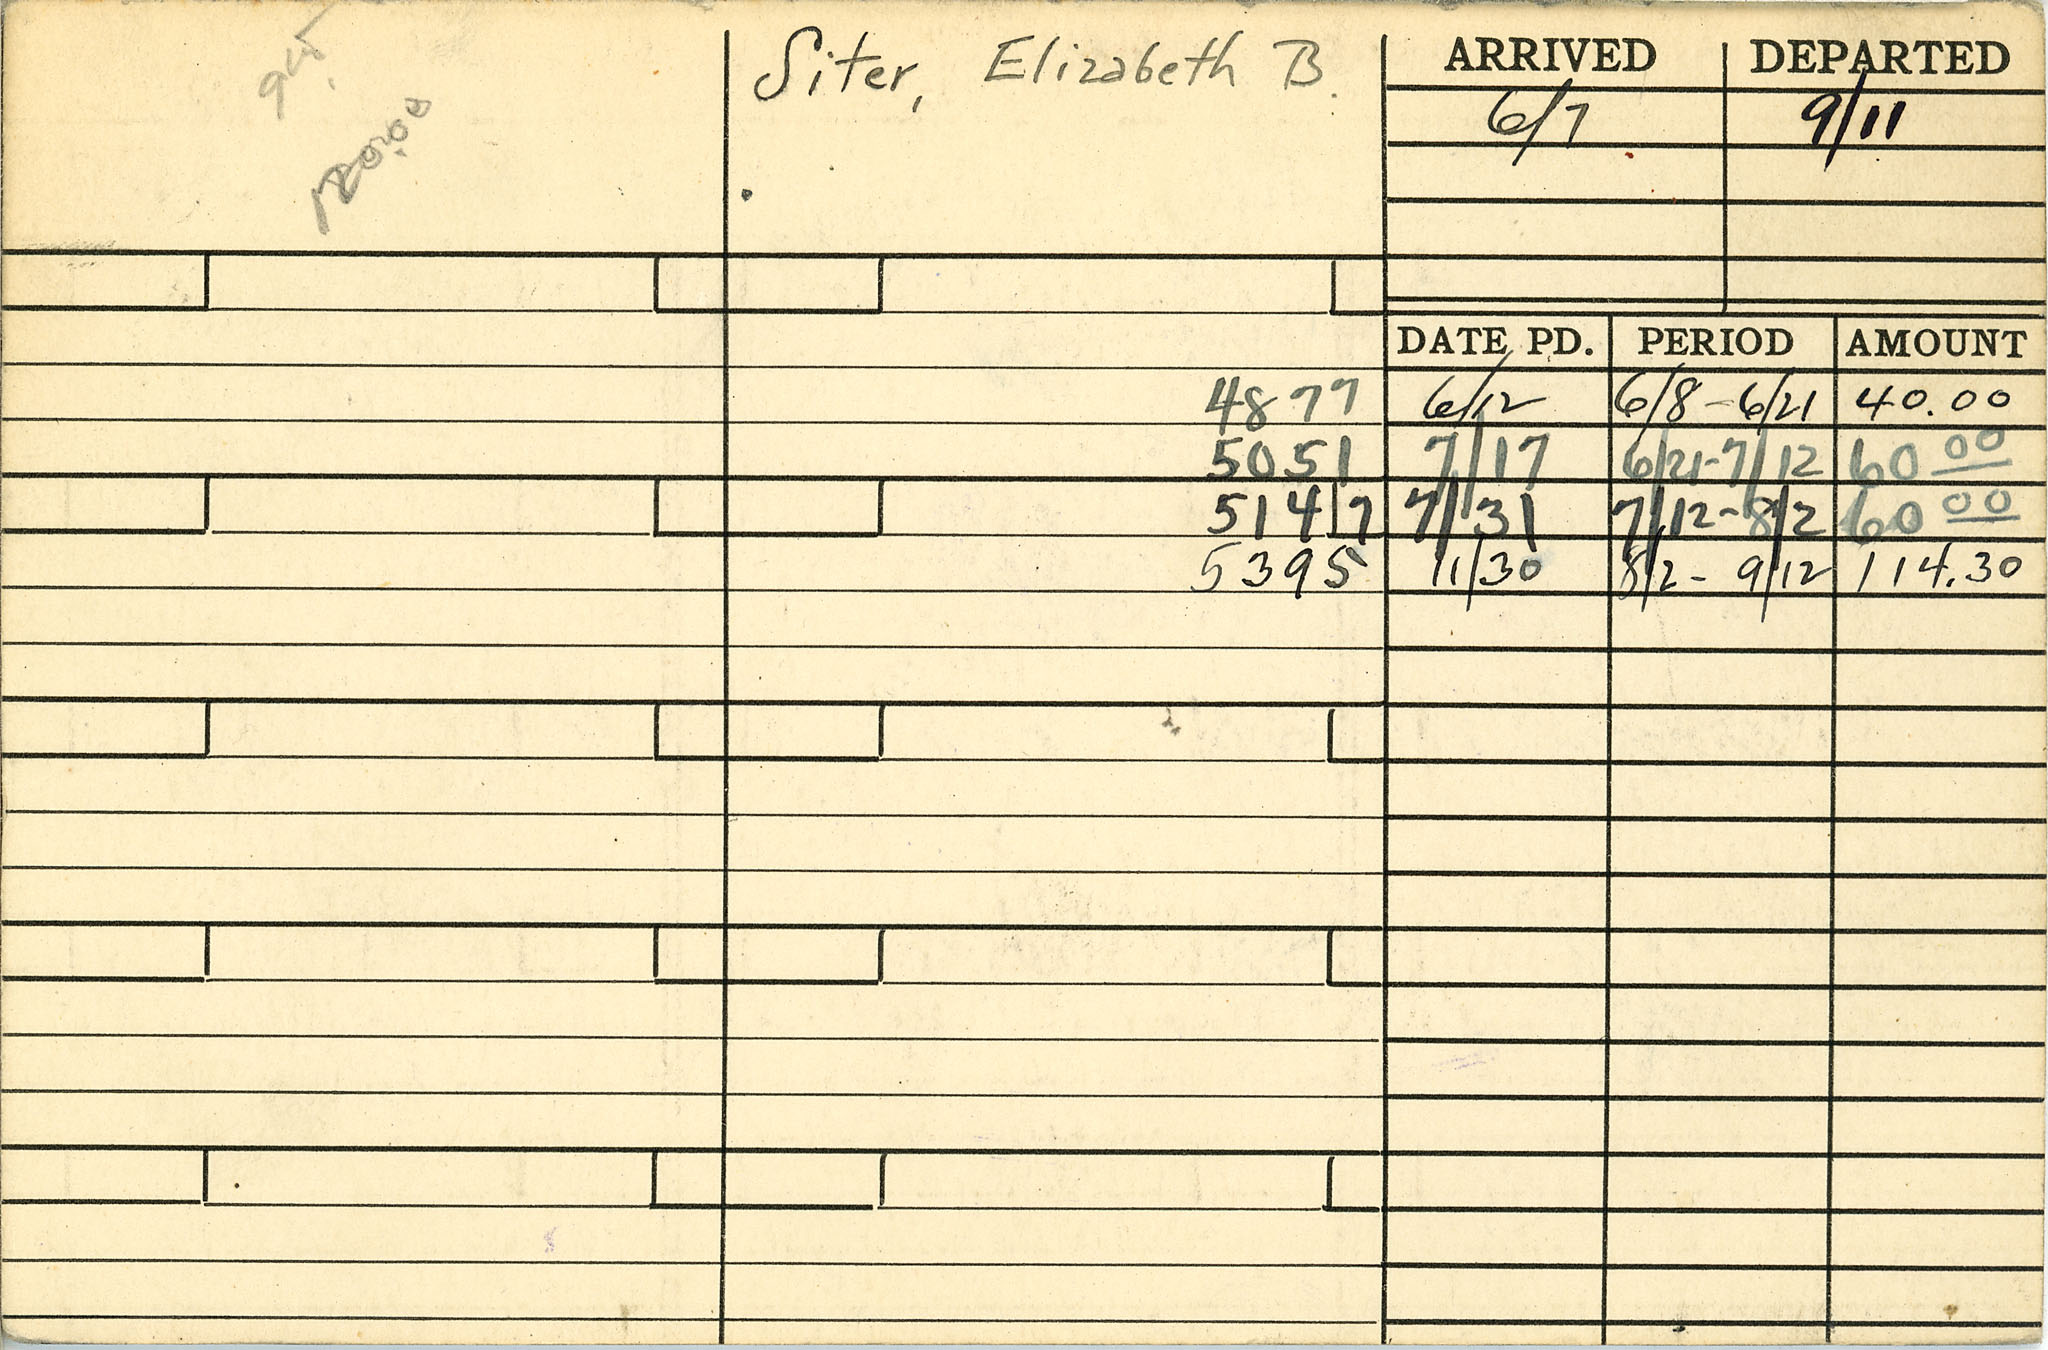 Siter, Elizabeth B.
ARRIVED DEPARTED
6/7 9/11
DATE PD. PERIOD AMOUNT
4877 6/12 6/8-6/21 40.00
5051 7/17 6/21-7/12 60 00
5147 7/31 7/12-8/2 60 00
5395 11/30 8/2-9/12 114.30